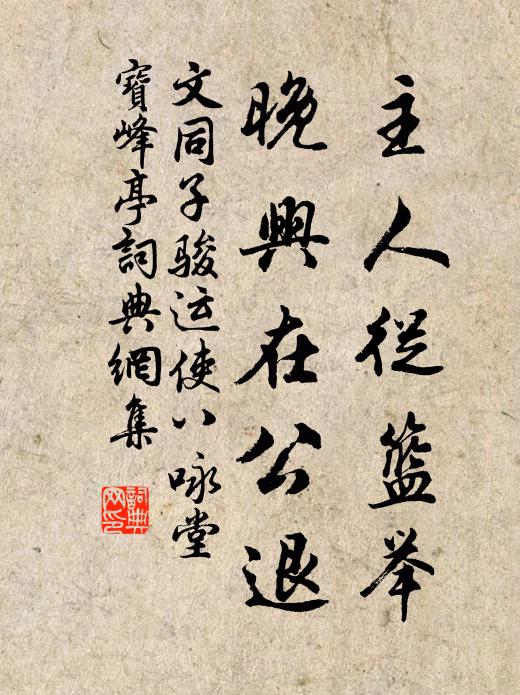 主人從籃举
晚興在公退
文同子骏运使八咏堂
寶峰亭詞典網集
詞典网印